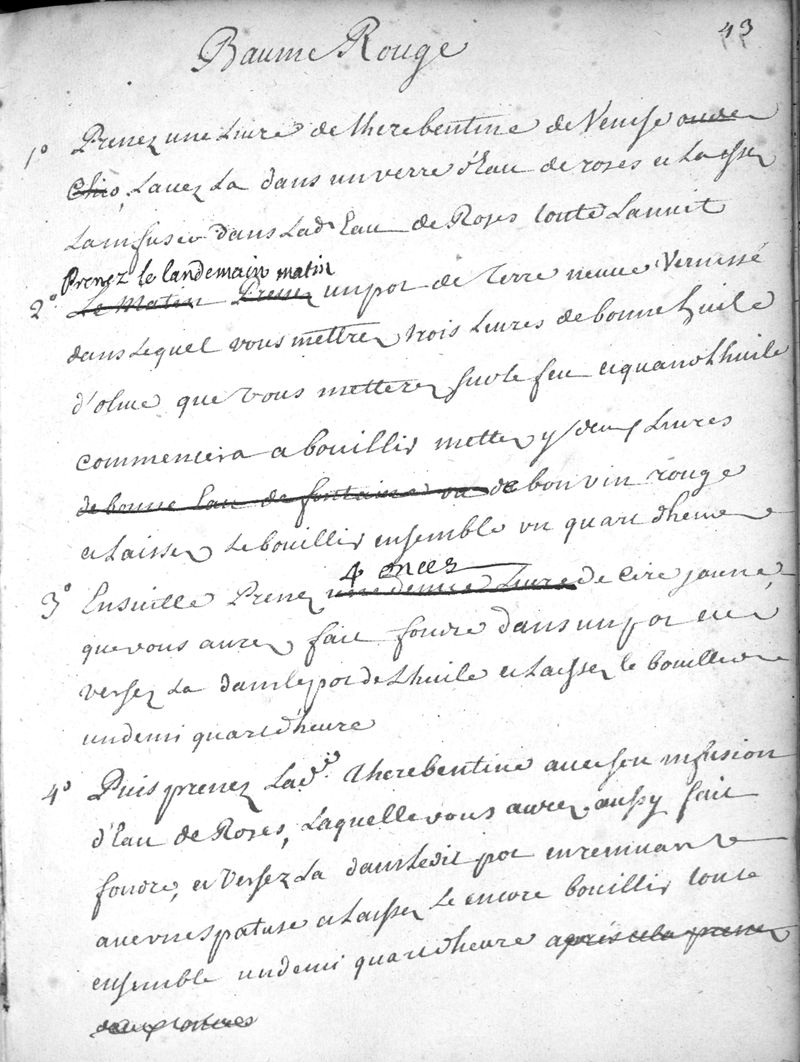 43
Baume Rouge
1° Prenez une Livre de therebentine de Venise ou de
Chio, Lavez La dans un verre d'Eau de roses et Laissez
La infuser dans Lad Eau de Roses toute La nuit
Prenez le landemain matin
2° Le Matin Prenez un pot de Terre neuve Vernissé
dans Lequel vous mettrez trois Livres de bonne huile
d'olive que vous metterez sur le feu et quand L'huile
commencera a bouillir mettez y deux Livres
de bonne Eau de fontaine ou de bon vin rouge
et Laissez Le bouillir ensemble un quart d'heure
4 onces
3° Ensuitte Prenez une demie Livre de cire jaune
que vous aurez fait fondre dans un pot et
versez La dans le pot de L'huile et Laissez le bouillir
un demi quart d'heure
4° Puis prenez Lad.te therebentine avec son infusion
d'Eau de Roses, Laquelle vous aurez aussy fait
fondre, et Versez La dans Ledit pot en remuant
avec une spatuse et Laissez Le encore bouillir toute
ensemble un demi quart d'heure après cela prenez
deux onces